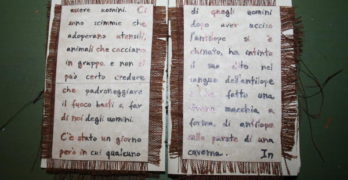 essere uomini. Ci
sono scimmie che
adoperano utensili,
animali che cacciano
in gruppo e non si
può certo credere
che padroneggiare
il fuoco basti a far
di noi degli uomini.
C'è stato un giorno
però in cui qualcuno
di quegli uomini
dopo aver ucciso
l'antilope si è
chinato, ha intinto
il suo dito nel
sangue dell'antilope
fatto una
macchia a
forma di antilope
sulla parete di una
caverna. In